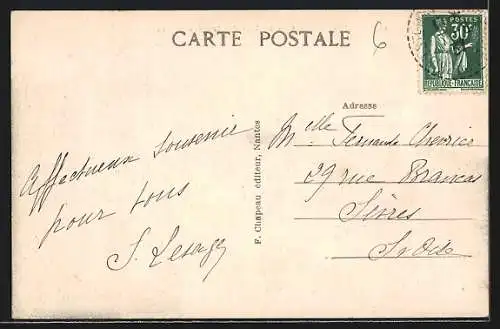 CARTE POSTALE
6
POSTES
30c
REPUBLIQUE FRANÇAISE
Adresse
Affectueux souvenir
pour tous
S. Lesage
F. Chapeau éditeur, Nantes
Melle Fernande Chevrier
29 rue Brancas
Sèvres
S. Oise